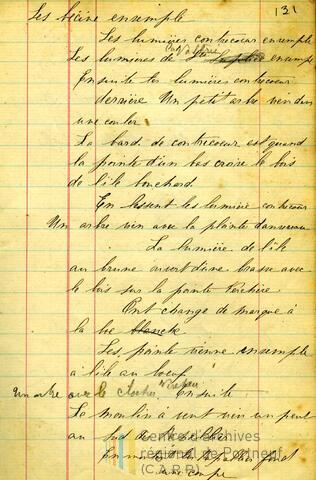 131
Les biène ensemple
Les lumières contrecoeur ensemple
Les lumières de ensemp
Ensuite les lumières contrecoeur
derrière Un petit arbre vien dun
une couler
La bard de contrecoeur est quand
la pointe d'un bas croire le bois
de l'île bouchard.
En lessent les lumière contrecoeur
Un arbre vien avec la plainte danureau
La lumière de l'île
au brune ouvert d'une brasse avec
le bois sur la pointe
Ont change de marque à
la be
Les pointe vienne ensemple
à l'île au boeuf
Un arbre avec le clocher Ensuite
Le moulin à vent vien un peut
au sud du
En
une coupe
Centre d'archives
régional de Portneuf
(C.A.R.P.)